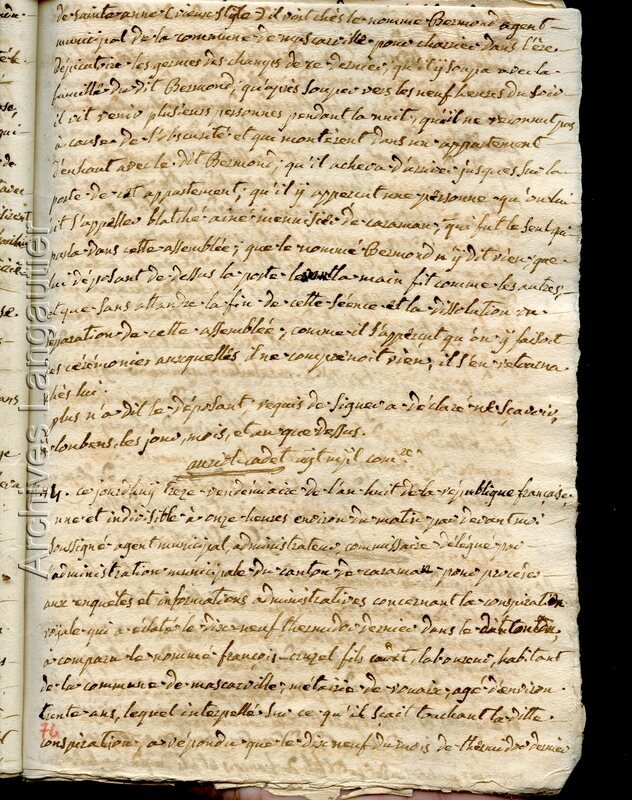 de sainte anne (vieux style) il vint chés le nommé Bermond agent
municipal de la commune de mascarville pour charrier dans l'ère
dépicatoire les gerbes des champs de ce dernier, qu'il y soupa avec la
famille du dit Bermond, qu'après souper vers les neuf heures du soir
il vit venir plusieurs personnes pendant la nuit, qu'il ne reconnut pas
à cause de l'obscurité et qui montèrent dans un appartement
d'enhaut avec le dit Bermond, qu'il acheva d'arriver jusques sur la
porte de cet appartement, qu'il y apperçut une personne qu'on lui
dit s'appeller blatché ainé menuisier de caraman, qui fut le seul qui
parla dans cette assemblée, que le nommé Bermond n'y dit rien, que
lui déposant de dessus la porte la main fit comme les autres,
et que sans attandre la fin de cette séence et la dissolution ou
séparation de cette assemblée, comme il s'apperçut qu'on y faisoit
des cérémonies auxquelles il ne comprenoit rien, il s'en retourna
chés lui.
plus n'a dit le déposant, requis de signer a déclaré ne sçavoir,
à loubens, les jour, mois, et an que dessus.
auriol cadet agt mpl comre
ce jourdhuy treze vendemiaire de l'an huit de la république française,
une et indivisible à onze heures environ du matin par devant moi
soussigné agent municipal, administrateur, commissaire délégué par
l'administration municipale du canton de caraman pour procéder
aux enquètes et informations administratives concernant la conspiration
royale qui a éclaté le dix neuf thermidor dernier dans le dit canton,
a comparu le nommé françois cruzel fils cadet, laboureur, habitant
de la commune de mascarville, métairie de rouaix, agé d'environ
trente ans, lequel interpellé sur ce qu'il scait touchant la ditte
conspiration, a répondu que le dix neuf du mois de thermidor dernier
76
Archives Langautier